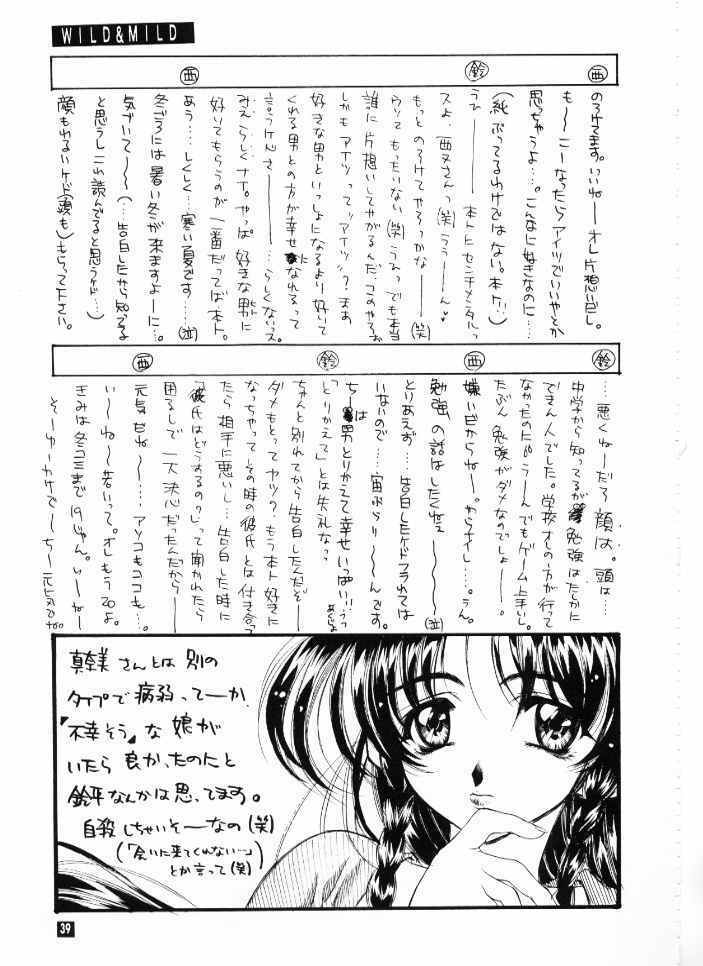 WILD&MILD
西
のろけてます。いいねーオレ片想いだし。
も〜こーなったらアイツでいいやとか
思っちゃうよ…。こんなに好きなのに…
(純ぶってるわけではない。本ケ!!)
鈴
うひ――本トにセンチメンタルっ
スよ、西又さんっ(笑)ううーん♥
もっとのろけてやろっかな――(笑)
ウソでもったいない(笑)
誰に片想いしてやがるんだ、このやろお
しかもアイツって"アイツ"？まあ
好きな男といっしょになるより好いて
くれる男との方が幸せになれるって
言うケどさ――……らしくないっス。
みえらしくナイ。やっぱ好きな男に
好いてもらうのが一番だってば、本ト。
西
あう……しくしく…寒い夏です……(泣)
冬ごろには暑い冬が来ますよーに…。
気づいて〜〜(…告白したから知ってる
と思うしこれ読んでると思うケド…)
顔もわるいケど(頭も)もらって下さい。
鈴
…悪くねーだろ顔は。頭は…
中学から知ってるが勉強はたしかに
できん人でした。学校オレの方が行って
なかったのに。うーんでもゲーム上手いし。
たぶん勉強がダメなのでしょー。
西
嫌いだからねー。わからナイし…。うん。
勉強の話はしたくねえ〜〜〜(泣)
とりあえず…告白したケドフラれては
いないので…宙ぶらり〜〜んです。
鈴
ちーは男とりかえて幸せいっぱい!!
「とりかえて」とは失礼なっ
ちゃんと別れてから告白したんだぞー
ダメもとってヤツ？もう本ト好きに
なっちゃってその時の彼氏とは付き合って
たら相手に悪いし…告白した時に
「彼氏はどうするの？」って聞かれたら
困るしで一大決心だったんだから――
西
元気だね〜…アソコもココも…。
い〜ね〜若いって。オレもう20よ。
きみは冬コミまで19じゃん。いーねー
そーゆーわけでーちー元気でね。
真幸美さんとは別の
タイプで病弱ってーか、
『不幸そう』な娘が
いたら良かったのにと
鈴平なんかは思ってます。
自殺しちゃいそーなの(笑)
(「会いに来てくれない…」
とか言って(笑))
39